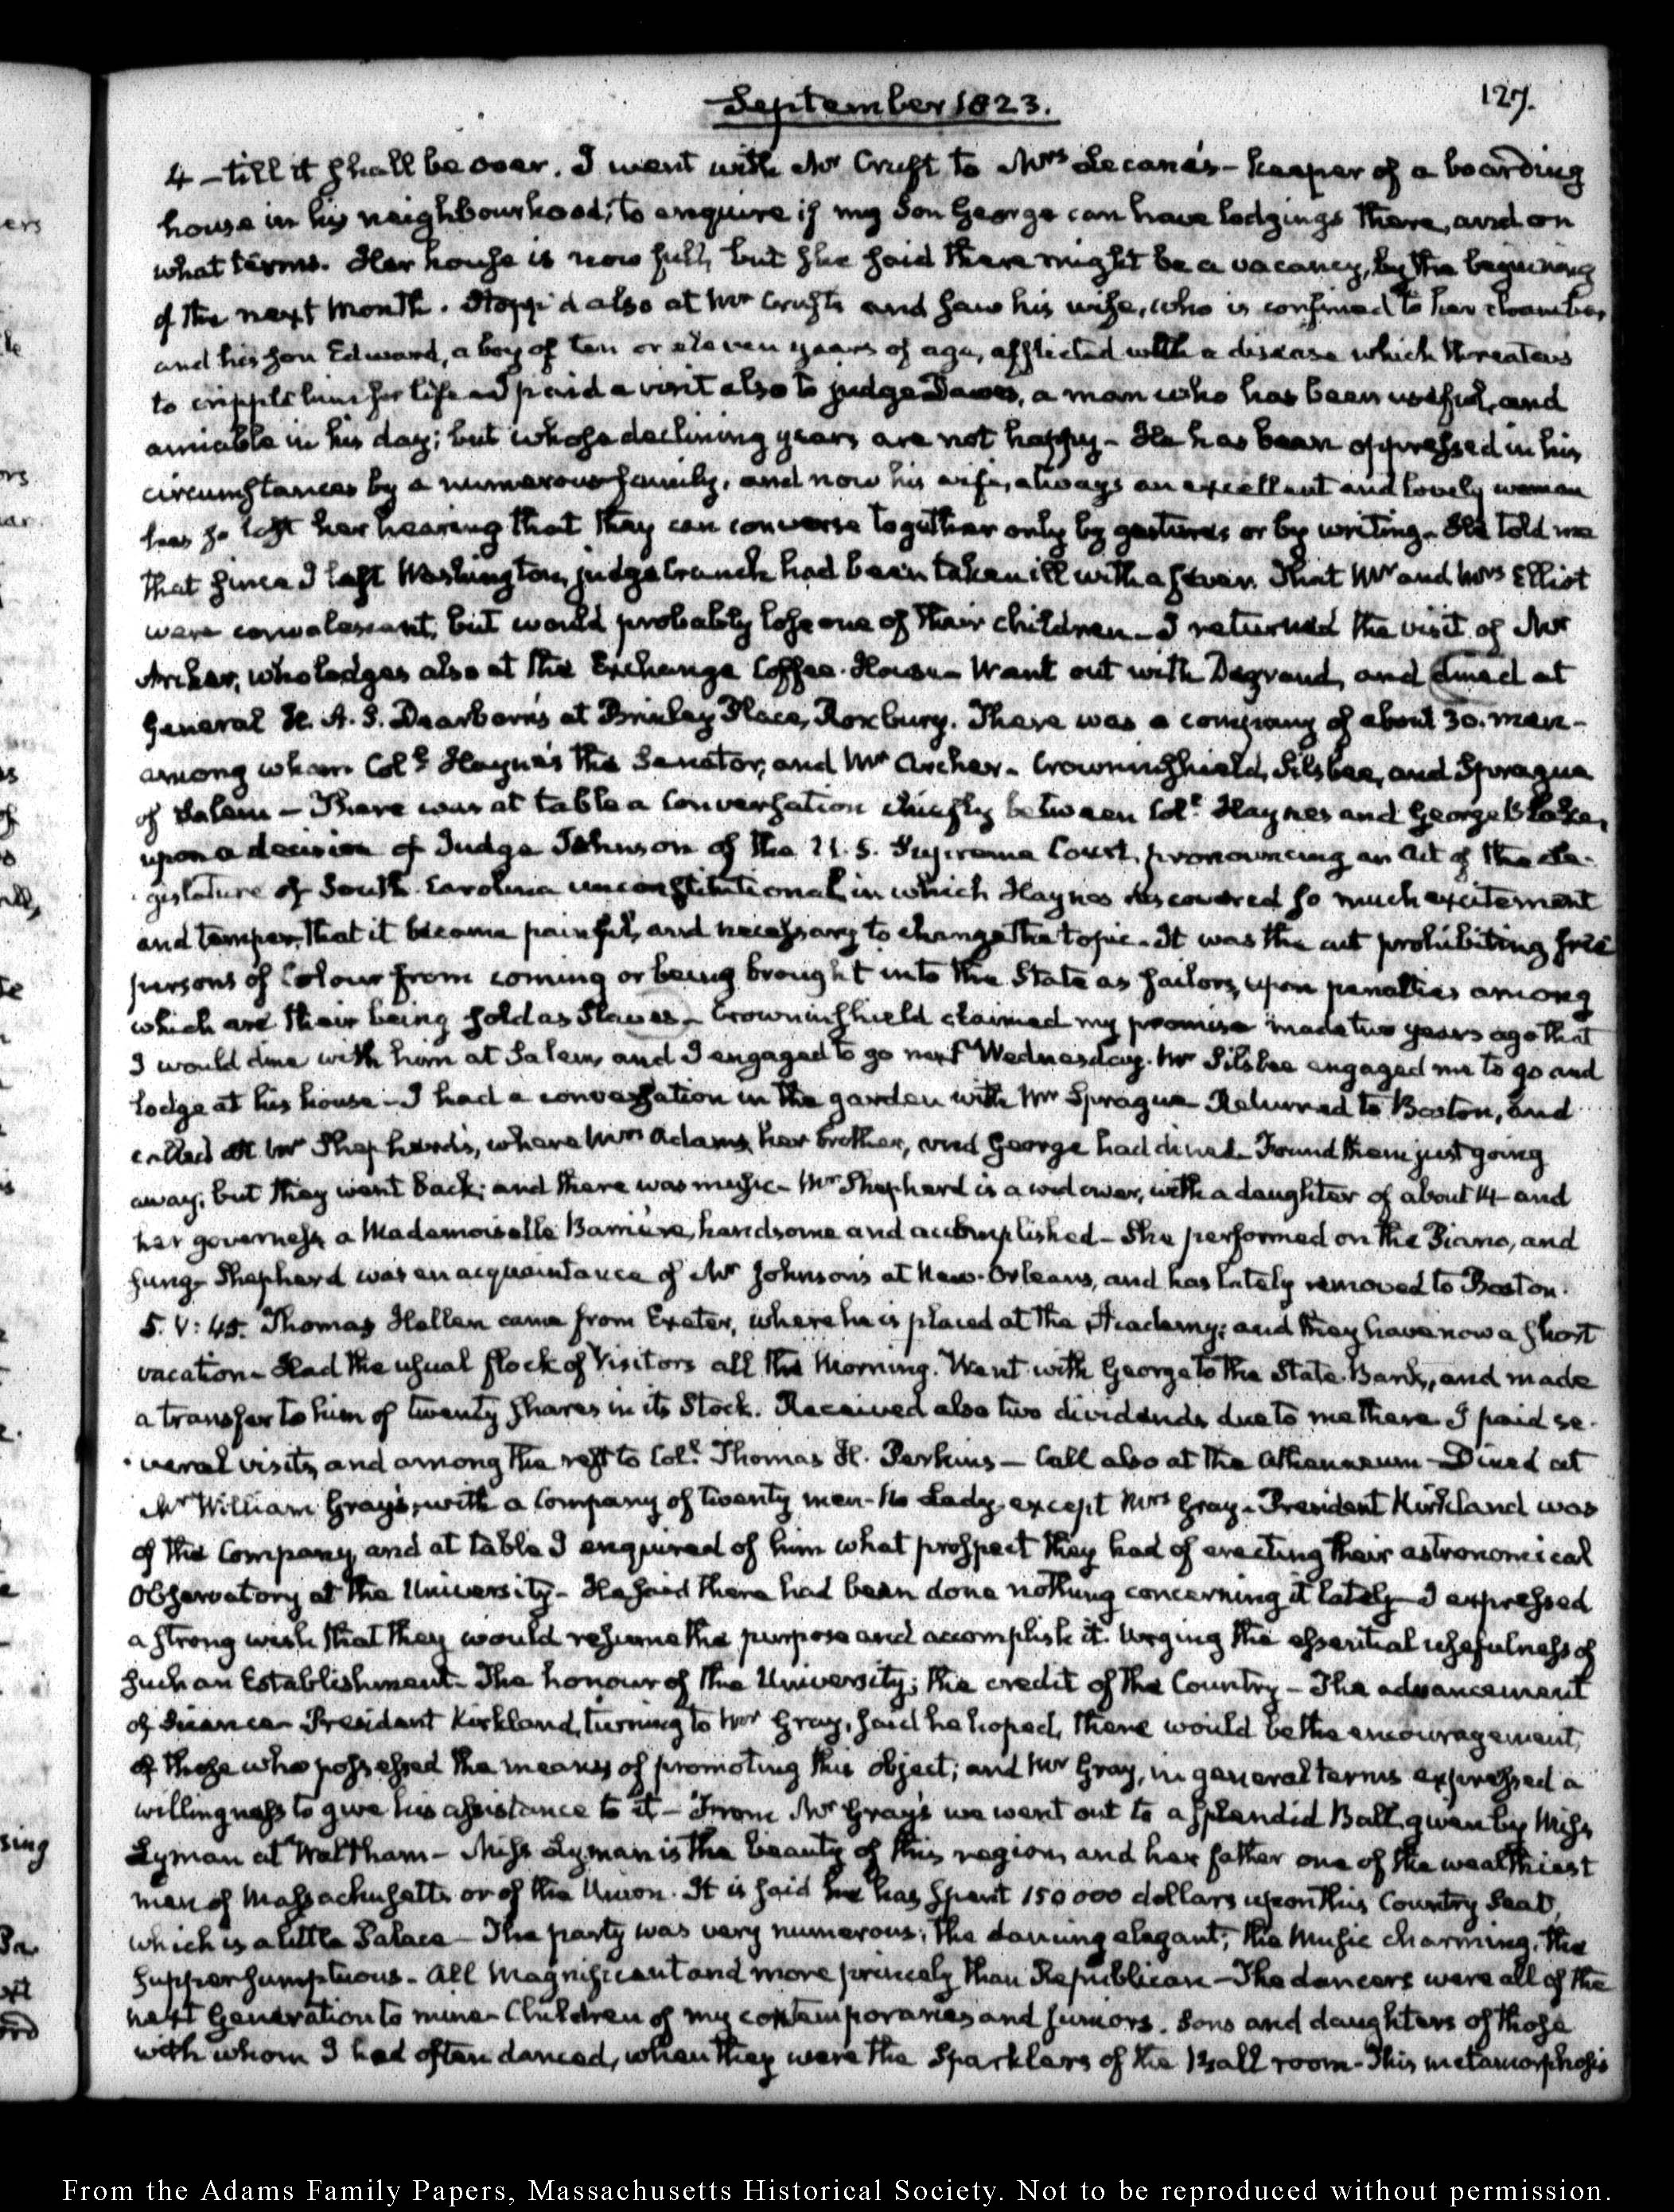 September 1823.
127.
4 – till it shall be over. I went with Mr Cruft to Mrs Lecane's – keeper of a boarding
house in his neighbourhood, to enquire if my Son George can have lodgings there, and on
what terms. Her house is now full, but she said there might be a vacancy, by the beginning
of the next month. Stopp'd also at Mr Cruft's and saw his wife, who is confined to her chamber,
and his son Edward, a boy of ten or eleven years of age, afflicted with a disease which threatens
to cripple him for life – I paid a visit also to judge Dawes, a man who has been useful, and
amiable in his day; but whose declining years are not happy – He has been oppressed in his
circumstances by a numerous family, and now his wife, always an excellent and lovely woman
has so lost her hearing that they can converse together only by gestures or by writing – He told me
that since I left Washington, judge Cranch had been taken ill with a fever. That Mr and Mrs Elliot
were convalescent, but would probably lose one of their children – I returned the visit of Mr
Archer, who lodges also at the Exchange Coffee-House – Went out with Degrand, and dined at
General H. A. S. Dearborn's at Brinley Place, Roxbury. There was a company of about 30. men –
among whom Coll Haynes the Senator, and Mr Archer – Crowninshield, Silsbee, and Sprague
of Salem – There was at table a Conversation chiefly between Coll Haynes and George Blake,
upon a decision of Judge Johnson of the U. S. Supreme Court, pronouncing an Act of the Le-
gislature of South-Carolina unconstitutional, in which Haynes discovered so much excitement
and temper, that it became painful, and necessary to change the topic – It was the act prohibiting free
persons of Colour from coming or being brought into the State as sailors, upon penalties among
which are their being sold as Slaves – Crowninshield claimed my promise made two years ago that
I would dine with him at Salem, and I engaged to go next Wednesday. Mr Silsbee engaged me to go and
lodge at his house – I had a conversation in the garden with Mr Sprague – Returned to Boston, and
called at Mr Shepherd's, where Mrs Adams, her brother, and George had dined – Found them just going
away; but they went back; and there was music – Mr Shepherd is a widower, with a daughter of about 14 – and
her governess a Mademoiselle Barrière, handsome and accomplished – She performed on the Piano, and
sung – Shepherd was an acquaintance of Mr Johnson's at New-Orleans, and has lately removed to Boston.
5. V: 45. Thomas Hellen came from Exeter, where he is placed at the Academy; and they have now a short
vacation – Had the usual flock of Visitors all the Morning. Went with George to the State Bank, and made
a transfer to him of twenty shares in its Stock. Received also two dividends due to me there. I paid se-
veral visits, and among the rest to Coll Thomas H. Perkins – Call also at the Athenaeum – Dined at
Mr William Gray's, with a Company of twenty men – No Lady, except Mrs Gray – President Kirkland was
of the Company, and at table I enquired of him what prospect they had of erecting their astronomical
Observatory at the University – He said there had been done nothing concerning it lately – I expressed
a strong wish that they would resume the purpose and accomplish it. Urging the essential usefulness of
such an Establishment – The honour of the University; the credit of the Country – The advancement
of Science – President Kirkland, turning to Mr Gray, said he hoped, there would be the encouragement,
of those who possessed the means of promoting this object; and Mr Gray, in general terms expressed a
willingness to give his assistance to it – From Mr Gray's we went out to a splendid Ball, given by Miss
Lyman at Waltham – Miss Lyman is the beauty of this region, and her father one of the wealthiest
men of Massachusetts or of the Union. It is said he has spent 150 000 dollars upon this Country Seat,
which is a little Palace – The party was very numerous; the dancing elegant; the Music charming, the
supper sumptuous – All magnificent and more princely than Republican – The dancers were all of the
next Generation to mine – Children of my contemporaries and juniors. Sons and daughters of those
with whom I had often danced, when they were the Sparklers of the Ball room – This metamorphosis
From the Adams Family Papers, Massachusetts Historical Society. Not to be reproduced without permission.